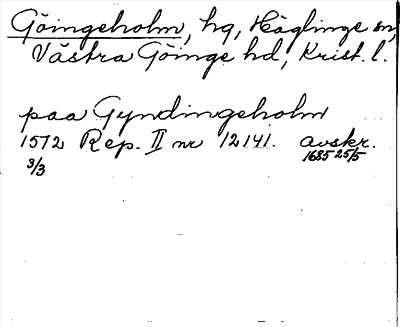 Göingeholm, hg, Häglinge sn,
Västra Göinge hd, Krist. l.
paa Gyndingeholm
1512 Rep. II nr 12141. avskr.
3/3 1685 25/5